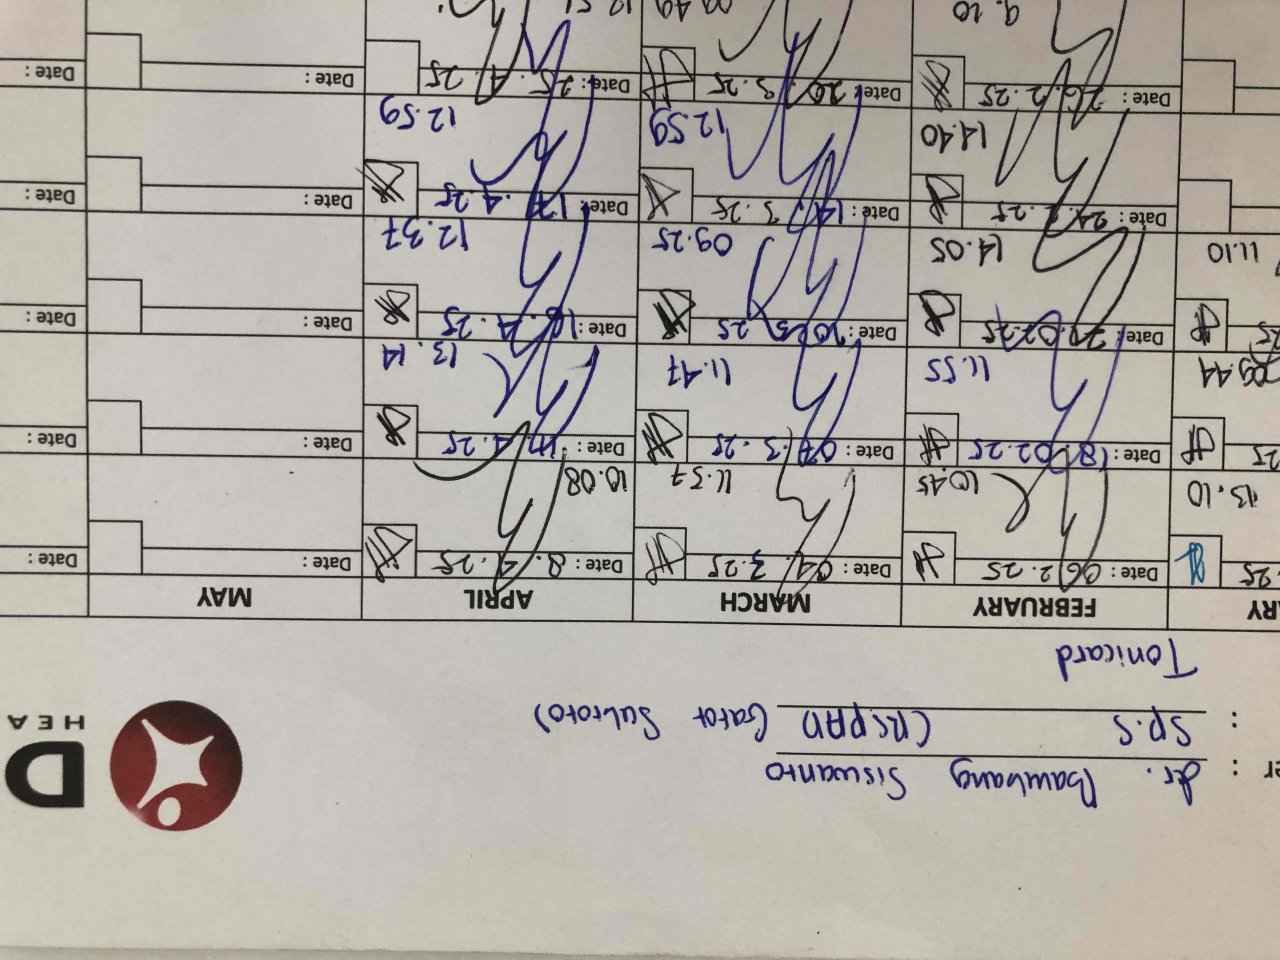 er : dr. Bambang Siswanto
: Sp.S (RSPAD Gatot Subroto)
Tonicard
D
HEA
ARY FEBRUARY MARCH APRIL MAY
25 Date: 06.2.25 Date: 04.3.25 Date: 8.4.25 Date: Date:
13.10 10.45 11.37 10.08
25 Date: 18.02.25 Date: 07.3.25 Date: 4.25 Date: Date:
09.44 11.55 11.47 13.14
25 Date: 02.25 Date: 10.3.25 Date: 16.4.25 Date: Date:
11.10 14.05 09.25 12.37
Date: 24.2.25 Date: 14.3.25 Date: 17.4.25 Date: Date:
14.40 12.59 12.59
Date: 26.2.25 Date: 20.3.25 Date: 25.4.25 Date: Date:
9.10 09.49 12.51